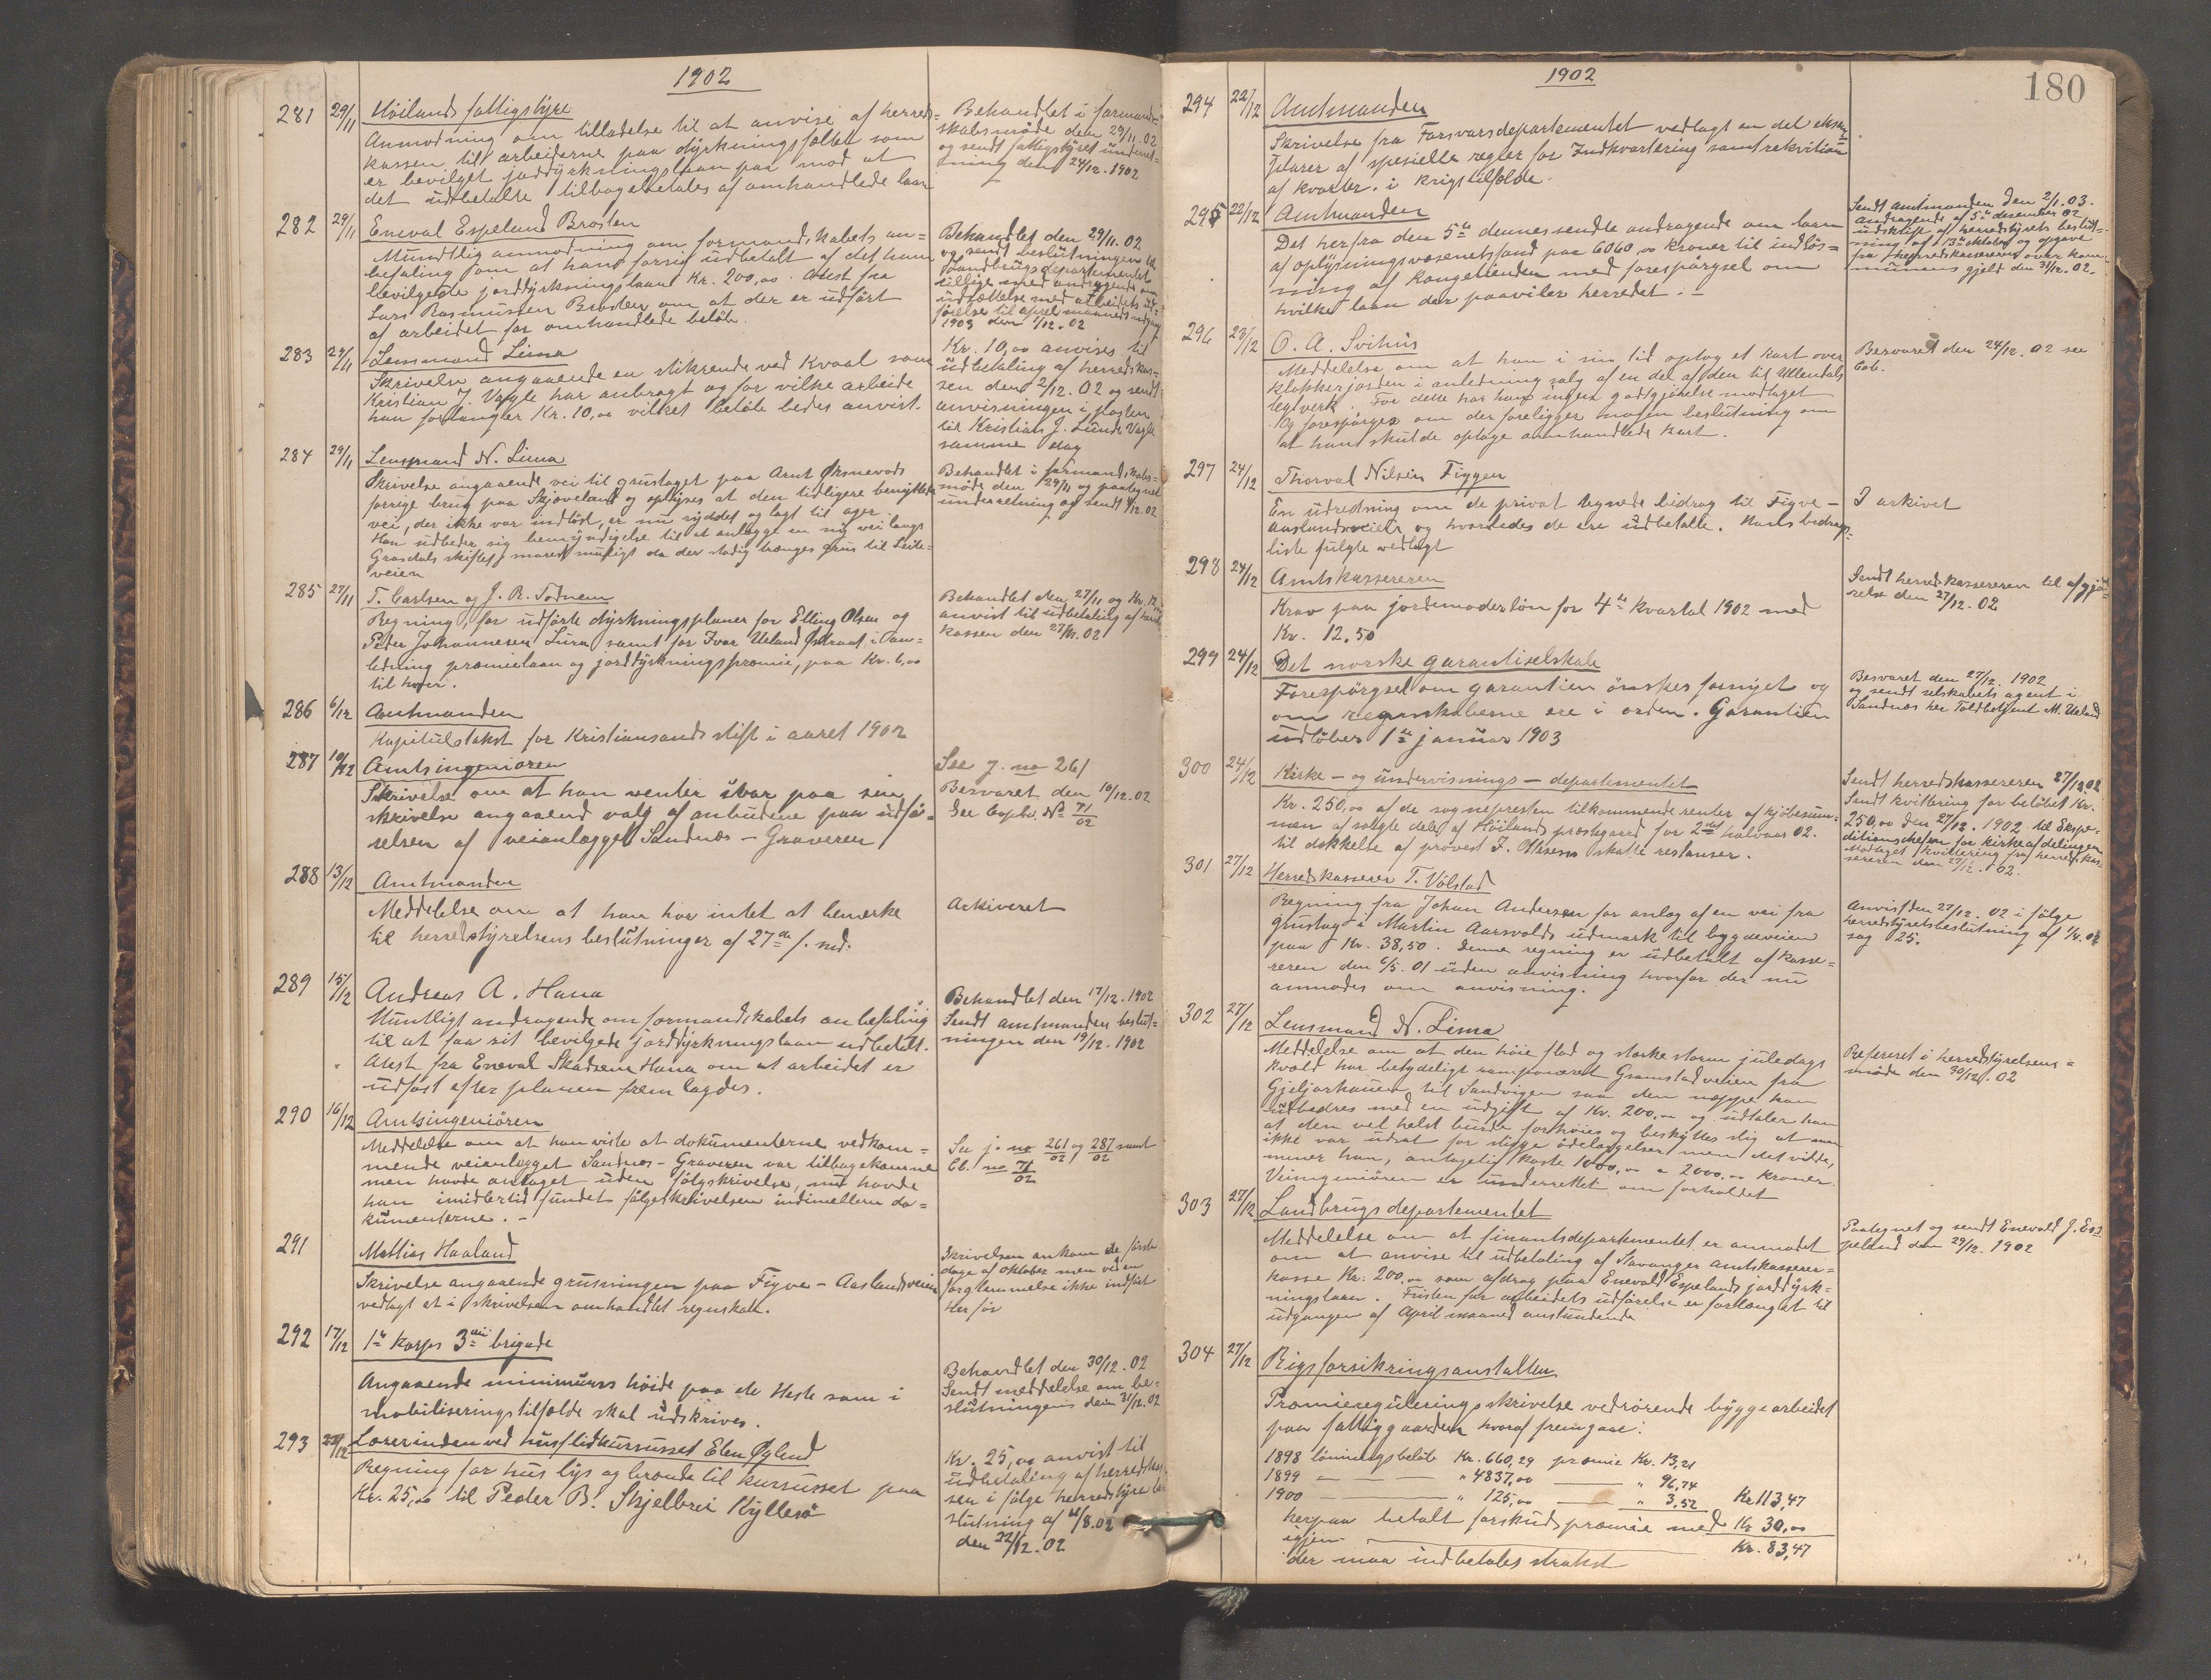 1902
281 29/11 Höilands fattigstyre
Anmodning om tilladelse til at anvise af herreds=
kassen til arbeiderne paa dyrkningsfeltet som
er bevilget jorddyrkningslaan paa mod at
det udbetalte tilbagebetales af omhandlede laan
Behandlet i formand=
skabsmöde den 29/11.02
og sendt fattigstyret underret=
ning den 24/12.1902
282 29/11 Eneval Espeland Brosten
Mundtlig anmodning om formandskabets an=
befaling om at han forsig udbetalt af det ham
bevilgede jorddyrkningslaan Kr. 200,00. Attest fra
Lars Rasmussen Brosten om at der er udfört
af arbeidet for omhandlede belöb.
Behandlet den 29/11.02
og sendt beslutningen til
Landbrugsdepartementet
tillige med andragende om
udsættelse med arbeidets ud=
förelse til april maaneds udgang
1903 den 1/12.02
283 29/11 Lensmand Lima
Skrivelse angaaende en stikrende ved Kvaal som
Kristian J. Vagle har anbragt og for vilke arbeide
han forlanger Kr. 10,00 vilket belöb bedes anvist.
Kr. 10,00 anvises til
udbetaling af herredskas=
sen den 2/12.02 og sendt
anvisningen i posten
til Kristian J. Lunde Vagle
samme dag
284 29/11 Lensmand N. Lima
Skrivelse angaaende vei til grustaget paa Arnt Öksnevads
forrige brug paa Skjæveland og oplyses at den tidligere benyttede
vei, der ikke var indlöst, er nu ryddet og lagt til ager.
Han udbeder sig bemyndigelse til at anlægge en ny vei langs
Grasdals skiftet snarest muligt da der stadig trænges grus til Leite=
veien
Behandlet i formandskabs=
möde den 29/11 og paategnet
underretning og sendt 1/12.02
285 27/11 T. Carlsen og J. R. Todnem
Regning for udförte dyrkningsplaner for Elling Olsen og
Peder Johannesen Lura samt for Ivar Ueland Östraat i an=
ledning præmielaan og jorddyrkningspræmie, paa Kr. 6,00
til hver.
Behandlet den 27/11 og Kr. 12,00
anvist til udbetaling af herreds=
kassen den 27/11.02
286 6/12 Amtmanden
Kapitulstakst for Kristiansands stift i aaret 1902
287 10/12 Amtsingeniören
Skrivelse om at han venter svar paa sin
skrivelse angaaend valg af anbudene paa udfö=
relsen af veianlægget Sandnæs – Graveren
See j. no 261
Besvaret den 10/12.02
See Copb. No 71/02
288 13/12 Amtmanden
Meddelelse om at han har intet at bemerke
til herredstyrelsens beslutninger af 27de f. md.
Arkiveret
289 15/12 Andreas A. Hana
Muntligt andragende om formandskabets anbefaling
til at faa sit bevilgede jorddyrkningslaan udbetalt.
Attest fra Eneval Skadsem Hana om at arbeidet er
udfört efter planen fremlagdes.
Behandlet den 17/12.1902
Sendt amtmanden beslut=
ningen den 19/12.1902
290 16/12 Amtsingeniören
Meddelelse om at han viste at dokumenterne vedkom=
mende veianlægget Sandnæs – Graveren var tilbagekomne
men havde antaget uden fölgskrivelse, nu havde
han imidlertid fundet fölgeskrivelsen indimellem do=
kumenterne. –
Se j. no 261/02 og 287/02 samt
Cb. no 71/02
291 Mattias Haaland
Skrivelse angaaende grusningen paa Figve – Aaslandsveien
vedlagt et i skrivelsen omhandlet regnskab.
Skrivelsen ankom de förste
dage af oktober men ved en
forglemmelse ikke indfört
för
292 17/12 1te Korps 3die brigade
Angaaende minimums höide paa de Heste som i
mobiliseringstilfælde skal udskrives.
Behandlet den 30/12.02
Sendt meddelelse om be=
slutningens den 31/12.02
293 22/12 Lærerinden ved husflidkursusset Elen Öglend
Regning for hus lys og brende til kursusset paa
Kr. 25,00 til Peder B. Skjelbrei Kyllesö
Kr. 25,00 anvist til
udbetaling af herredskas=
sen i fölge herredstyre be=
slutning af /8.02
den 22/12.02
1902
180
294 22/12 Amtmanden
Skrivelse fra Forsvarsdepartementet vedlagt en del eksem=
plarer af spesielle regler for Indkvartering samt rekvition
af kvarter i krigstilfælde.
295 22/12 Amtmanden
Det herfra den 5te dennes sendte andragende om laan
af oplysningsvæsenets fond paa 6060,00 kroner til indlös=
ning af kongetienden med forespörgsel om
hvilke laan der paaviler herredet. –
Sendt amtmanden den 2/1.03.
andragende af 5te desember 02
udskrift af herredstyrets beslut=
ning af 13de oktober og opgave
fra herredskassereren over kom=
munens gjeld den 31/12.02.
296 23/12 O. A. Svihus
Meddelelse om at han i sin tid optog et kart over
klokkerjorden i anledning salg af en del af den til Ullendals
teglverk. For dette har han ingen godtgjörelse modtaget
og forespörges om der foreligger nogen beslutning om
at han skulde optage omhandlede kart.
Besvaret den 24/12.02 see
Cob.
297 24/12 Thorval Nilsen Figgen
En udredning om de privat tegnede bidrag til Figve –
Aaslandsveien og hvorledes de ere udbetalte. Hans bidrags=
liste fulgte vedlagt
I arkivet
298 24/12 Amtskassereren
Krav paa jordemoderlön for 4de kvartal 1902 med
Kr. 12,50
Sendt herredskassereren til afgjö=
relse den 27/12.02
299 24/12 Det norske garantiselskab
Forespörgsel om garantien önskes fornyet og
om regnskaberne ere i orden. Garantien
udlöber 1ste januar 1903
Besvaret den 27/12.1902
og sendt selskabets agent i
Sandnæs her Toldbetjent M. Ueland
300 24/12 Kirke – og undervisnings – departementet
Kr. 250,00 af de sognepresten tilkommende renter af kjöbesum=
men af solgte dele af Höilands præstegaard for 2det halvaar 02.
til dækkelse af provest J. skatte restanser.
Sendt herredskassereren 27/12.02
Sendt kvittering for belöbet Kr.
250,00 den 27/12.1902 til Ekspe=
ditionschefen for kirkeafdelingen
Modtaget kvittering fra herredskas=
sereren den 27/12.02.
301 27/12 Herredskasserer T. Völstad
Regning fra Johan Andersen for anlæg af en vei fra
grustag i Martin Aarsvolds udmark til bygdeveien
paa Kr. 38,50. Denne regning er udbetalt af kasse=
reren den 6/5.01 uden anvisning hvorfor der nu
anmodes om anvisning.
Anvist den 27/12.02 i fölge
herredstyrets beslutning af
sag 25.
302 27/12 Lensmand N. Lima
Meddelelse om at den höie flod og sterke storm juledags
kvæld har betydeligt ramponeret Gramstadveien fra
Gjeljarhauen til Sandvigen saa den neppe kan
udbedres med en udgift af Kr. 200,00 og udtaler han
at den vel helst burde forhöies og beskyttes slig at man
ikke var udsat for slige ödelæggelser men det vilde,
mener han, antagelig koste 1000,00 a 2000,00 kroner.
Veiingeniören er underrettet om forholdet
Refereret i herredstyrelsens=
möde den 30/12.02
303 27/12 Landbrugsdepartementet
Meddelelse om at finantsdepartementet er anmodet
om at anvise til udbetaling af Stavanger amtskasserer=
kasse Kr. 200,00 som afdrag paa Enevald Espelands jorddyrk=
ningslaan. Fristen for arbeidets udförelse er forlænget til
udgangen af April maaned anstundende
Paategnet og sendt Enevald J. Es=
peland den 29/12.1902
304 27/12 Rigsforsikringsanstalten
Præmiereguleringsskrivelse vedrörende byggearbeidet
paa fattiggaarden hvoraf fremgaar:
1898 lönningsbelöb Kr. 660,29 præmie Kr. 13,21
1899 — — — " 4837,00 — " 96,74
1900 — " 125,00 — " 3,52 Kr. 113,47
herpaa betalt forskudspræmie med Kr 30,00
igjen — Kr. 83,47
der maa indbetales strakst